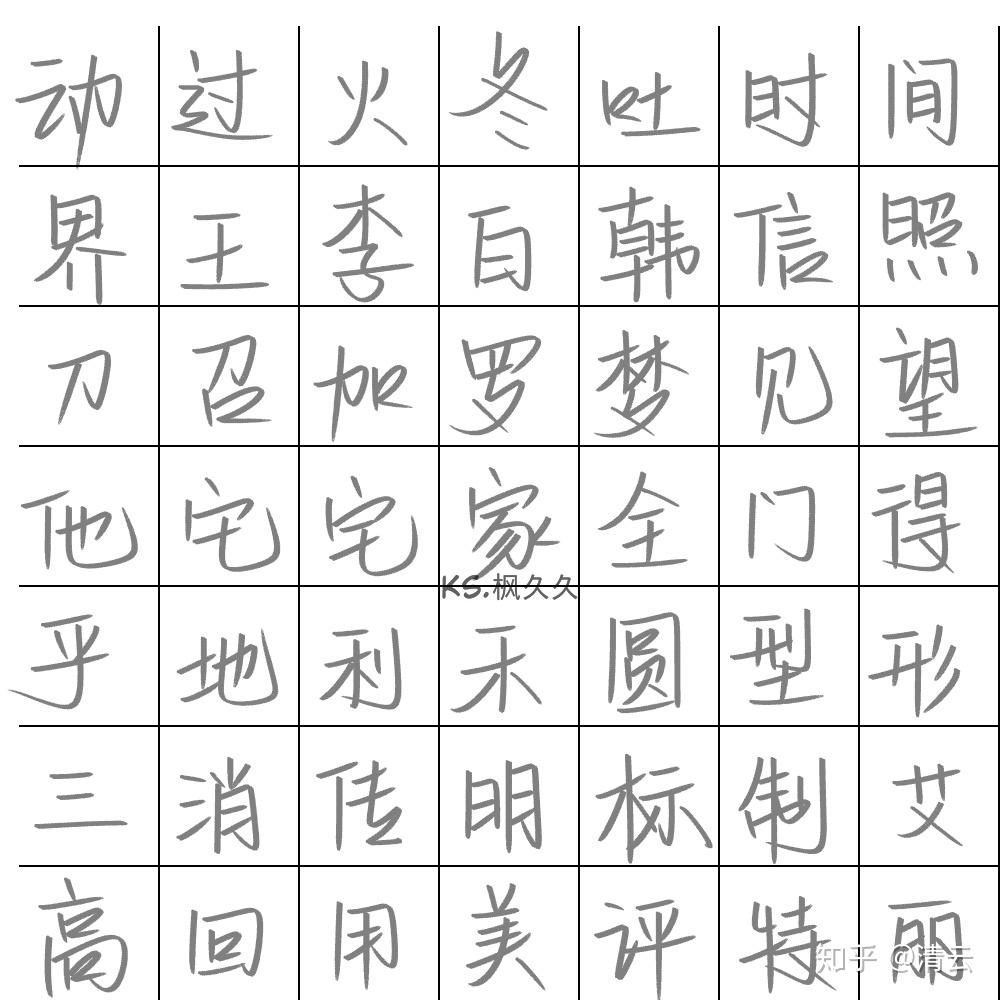 动过火冬吐时间
界王李白韩信照
刀召加罗梦见望
他宅宅家全门得
KS.枫久久
乎地利禾圆型形
三消传明标制艾
高回用美评特丽
知乎 @清云